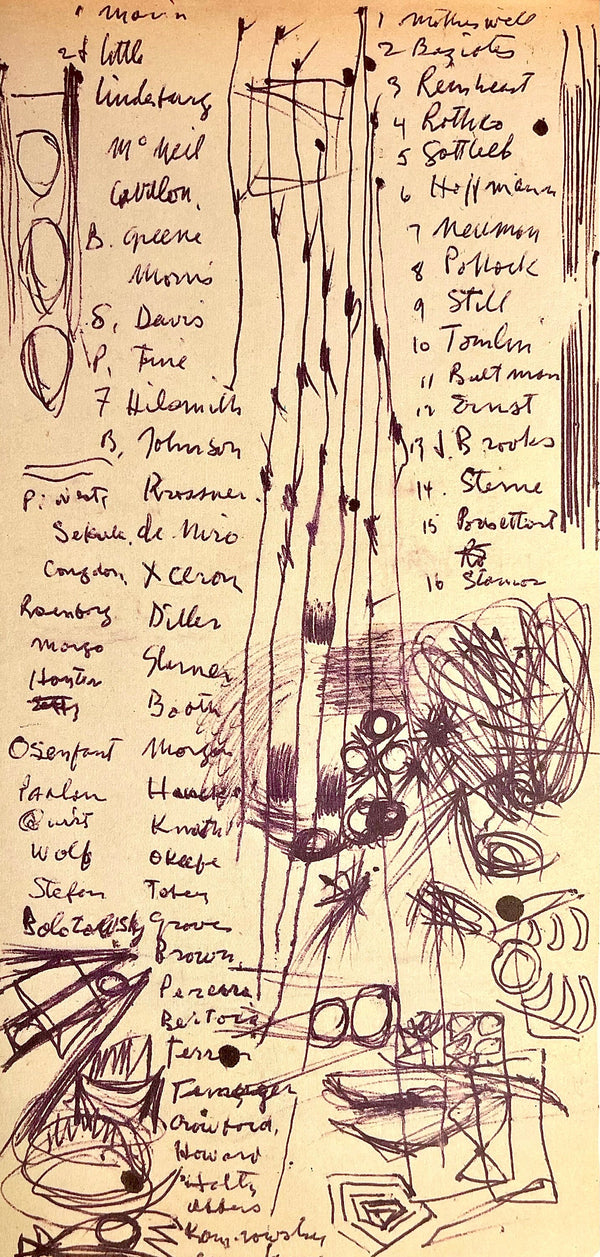 1 Marin
2 J little
Lindeburg
McNeil
Cavilon.
B. Greene
Morris
S. Davis
P. Fine
F Hilsmith
B. Johnson
Krossner.
Sekula, de Niro
Congdon, X ceron
Rosenborg Diller
Morgo Sterner
Hunter
Booth
Osenfant Morgan
Knath
Wolf Okeefe
Stefan Tobey
Bolotowsky Graves
Brown
Pereira
Bertoia
Terrer
Crawford.
Howard
Holty
Albers
1 Motherwell
2 Baziotes
3 Reinheart
4 Rothko
5 Gottleb
6 Hoffmann
7 Neuman
8 Pollock
9 Still
10 Tomlin
11 Bultman
12 Ernst
13 J. Brooks
14. Sterne
15 Pousettort
16 Stamos